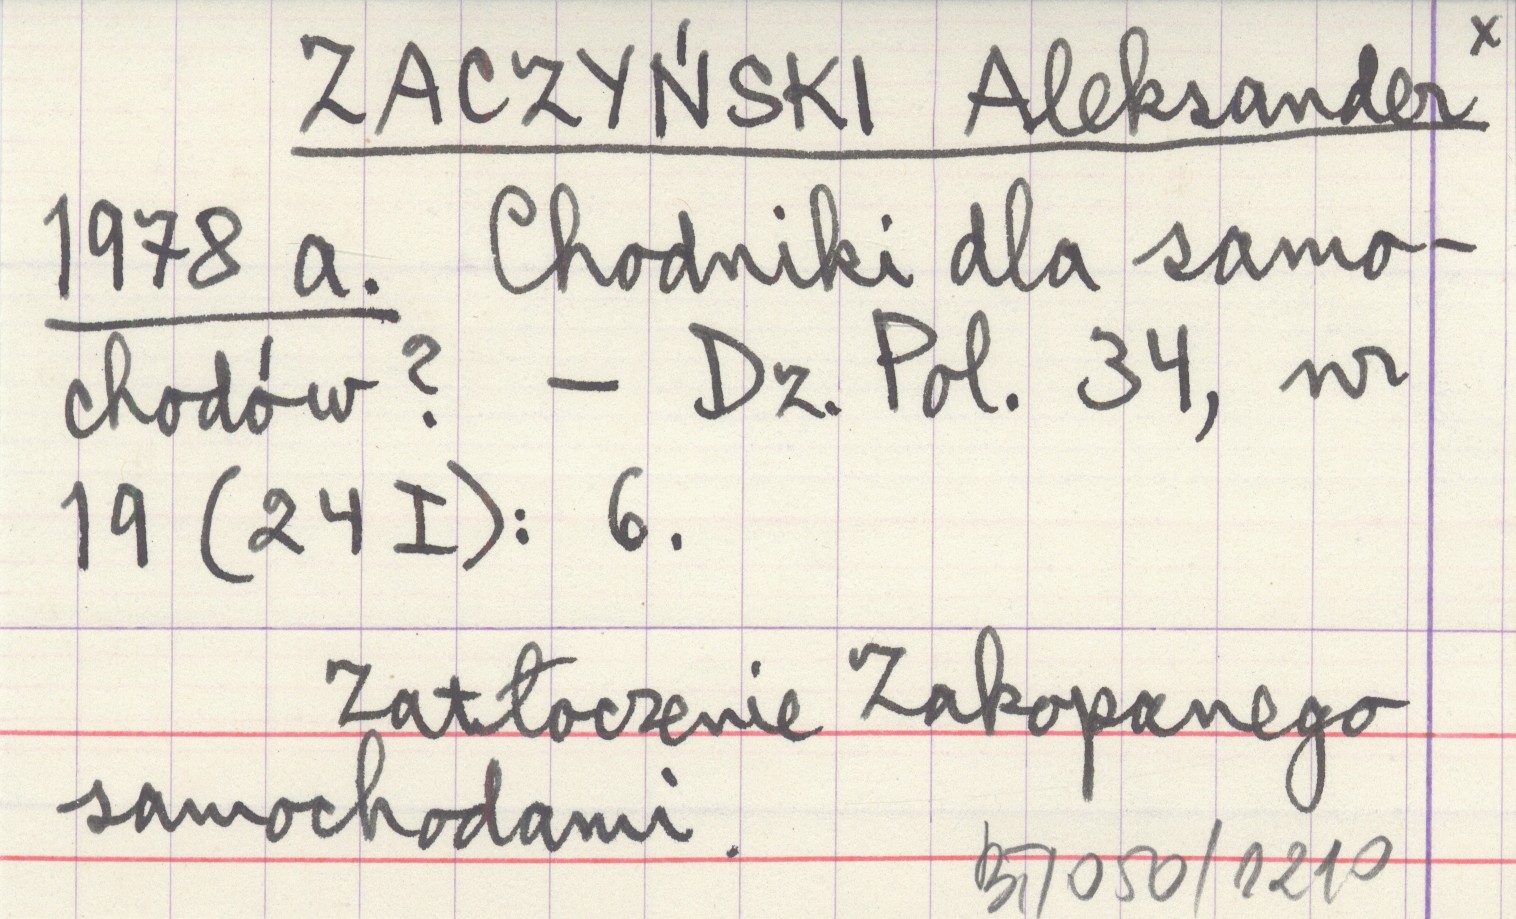 ZACZYŃSKI Aleksander x
1978 a. Chodniki dla samo-
chodów? — Dz. Pol. 34, nr
19 (24 I): 6.
Zatłoczenie Zakopanego
samochodami.
/050/1210